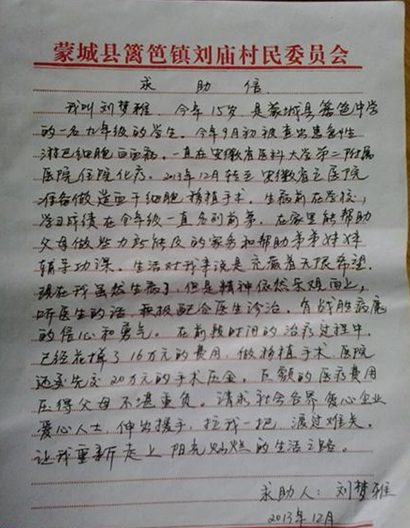 蒙城县篱笆镇刘庙村民委员会
求助信
我叫刘梦雅 今年15岁 是蒙城县篱笆中学
的一名九年级的学生。今年9月初被查出患急性
淋巴细胞白血病。一直在安徽省医科大学第二附属
医院住院化疗。2013年12月转至安徽省立医院
准备做造血干细胞移植手术。生病前在学校,
学习成绩在全年级一直名列前茅。在家里能帮助
父母做些力所能及的家务和帮助弟弟妹妹
辅导功课。生活对我来说是充满着无限希望。
现在我虽然生病了,但是精神依然乐观向上,
听医生的话,积极配合医生诊治。有战胜病魔
的信心和勇气。在前段时间的治疗过程中,
已经花掉了16万元的费用,做移植手术,医院
还要先交20万元的手术压金。巨额的医疗费用
压得父母不堪重负。请求社会各界爱心企业
爱心人士,伸出援手,拉我一把,渡过难关。
让我重新走上阳光灿烂的生活之路。
求助人:刘梦雅
2013年12月